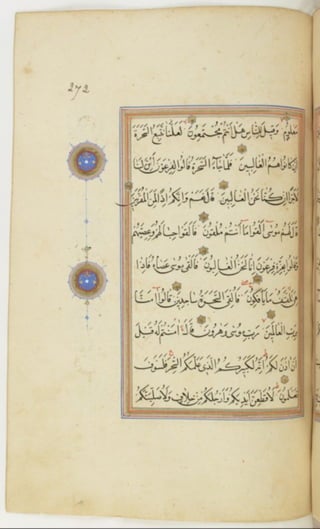 272
معلوم وقيل للناس هل انتم مجتمعون لعلنا نتبع السحرة
ان كانوا هم الغالبين فلما جاء السحرة قالوا لفرعون ائن لنا
لاجرا ان كنا نحن الغالبين قال نعم وانكم اذا لمن المقربين
قال لهم موسى القوا ما انتم ملقون فالقوا حبالهم وعصيهم
وقالوا بعزة فرعون انا لنحن الغالبون فالقى موسى عصاه فاذا
هي تلقف ما يافكون فالقي السحرة ساجدين قالوا امنا
برب العالمين رب موسى وهرون قال امنتم له قبل
ان اذن لكم انه لكبيركم الذي علمكم السحر فلسوف
تعلمون لاقطعن ايديكم وارجلكم من خلاف ولاصلبنكم